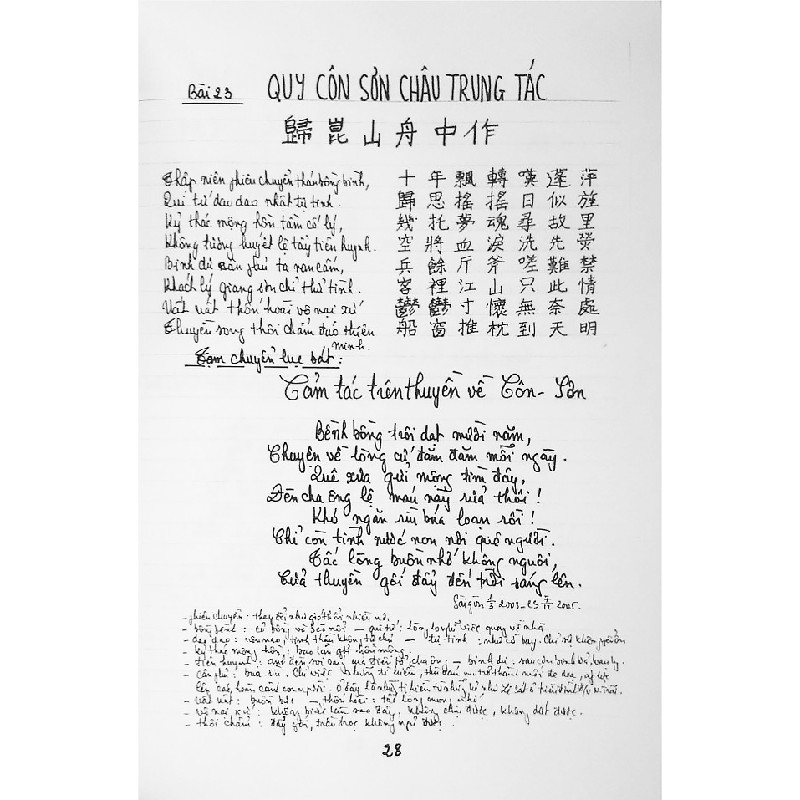 Bài 23
QUY CÔN SƠN CHÂU TRUNG TÁC
歸崑山舟中作
Thập niên phiêu chuyển thán bồng bình,
Qui tứ dao dao nhật tự tinh.
Kỷ thác mộng hồn tầm cố lý,
Không tương huyết lệ tẩy tiên huynh.
Binh dư cân phủ ta nan cấm,
Khách lý giang sơn chỉ thử tình.
Uất uất thốn hoài vô nại xứ
Thuyền song thôi chẩm đáo thiên minh.
十年飄轉嘆蓬萍
歸思搖搖日似旌
幾托夢魂尋故里
空將血淚洗先塋
兵餘斤斧嗟難禁
客裡江山只此情
鬱鬱寸懷無奈處
船窗推枕到天明
Tạm chuyển lục bát:
Cảm tác trên thuyền về Côn-Sơn
Bềnh bồng trôi dạt mười năm,
Chuyện về lòng cứ đăm đăm mỗi ngày.
Quê xưa gửi mộng tìm đây,
Đền cha ông lệ máu này rửa thôi!
Khó ngăn rìu búa loạn rồi!
Chỉ còn tình nước non nơi quê người.
Tấc lòng buồn nhớ không nguôi,
Cửa thuyền gối đẩy đến trời sáng lên.
Sàigòn
- phiêu chuyển: thay đổi như gió
- bồng bềnh: cỏ bồng và bèo nổi - qui tứ: lòng
- dao dao: - tự tinh: như cờ bay.
- kỷ thác mộng hồn: bao lần gửi hồn mộng.
- tiên huynh:
- binh dư:
- cân phủ: búa rìu.
- uất uất: buồn bực - thốn hoài: tấc lòng
- vô nại xứ: không biết làm sao đây, không chịu được, không dứt được.
- thôi chẩm: đẩy gối, trằn trọc không ngủ được.
28